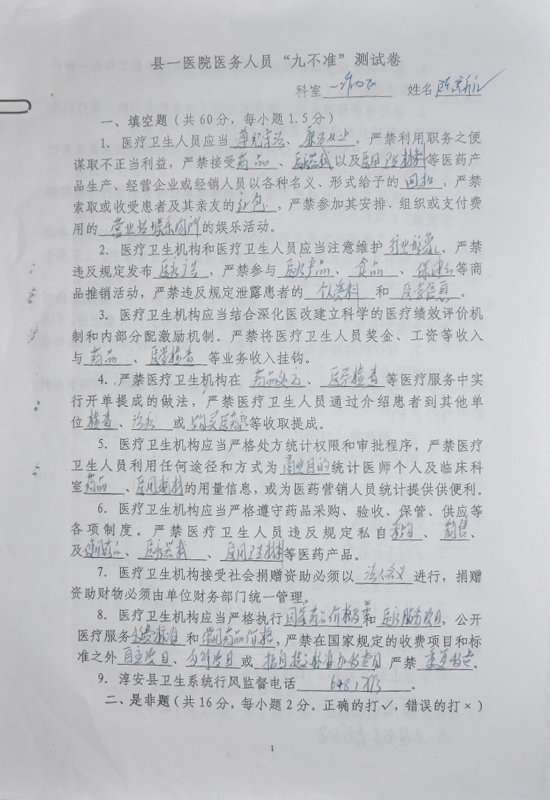 县一医院医务人员“九不准”测试卷
科室 姓名
一、填空题（共60分，每小题1.5分）
1. 医疗卫生人员应当 遵纪守法、廉洁从业，严禁利用职务之便
谋取不正当利益，严禁接受药品、医疗器械以及医用卫生材料等医药产
品生产、经营企业或经销人员以各种名义、形式给予的 回扣，严禁
索取或收受患者及其亲友的红包，严禁参加其安排、组织或支付费
用的 营业性娱乐场所的娱乐活动。
2. 医疗卫生机构和医疗卫生人员应当注意维护 行业形象。严禁
违反规定发布 医疗广告，严禁参与 医疗产品、食品、保健品等商
品推销活动，严禁违反规定泄露患者的 个人资料 和 医学信息。
3. 医疗卫生机构应当结合深化医改建立科学的医疗绩效评价机
制和内部分配激励机制。严禁将医疗卫生人员奖金、工资等收入
与 药品、医学检查 等业务收入挂钩。
4. 严禁医疗卫生机构在 药品处方、医学检查 等医疗服务中实
行开单提成的做法，严禁医疗卫生人员通过介绍患者到其他单
位检查、治疗 或 购买医药等收取提成。
5. 医疗卫生机构应当严格处方统计权限和审批程序，严禁医疗
卫生人员利用任何途径和方式为商业目的统计医师个人及临床科
室药品、医用耗材的用量信息，或为医药营销人员统计提供供便利。
6. 医疗卫生机构应当严格遵守药品采购、验收、保管、供应等
各项制度。严禁医疗卫生人员违反规定私自采购、销售、
及使用药品、医疗器械、医用卫生材料等医药产品。
7. 医疗卫生机构接受社会捐赠资助必须以 法人名义 进行，捐赠
资助财物必须由单位财务部门统一管理。
8. 医疗卫生机构应当严格执行国家药品价格政策和医疗服务项目，公开
医疗服务收费标准和常用药品价格，严禁在国家规定的收费项目和标
准之外自立项目、分解项目 或 擅自提高标准加收费用 严禁 重复收费。
9. 淳安县卫生系统行风监督电话
二、是非题（共16分，每小题2分。正确的打✓，错误的打×）
1